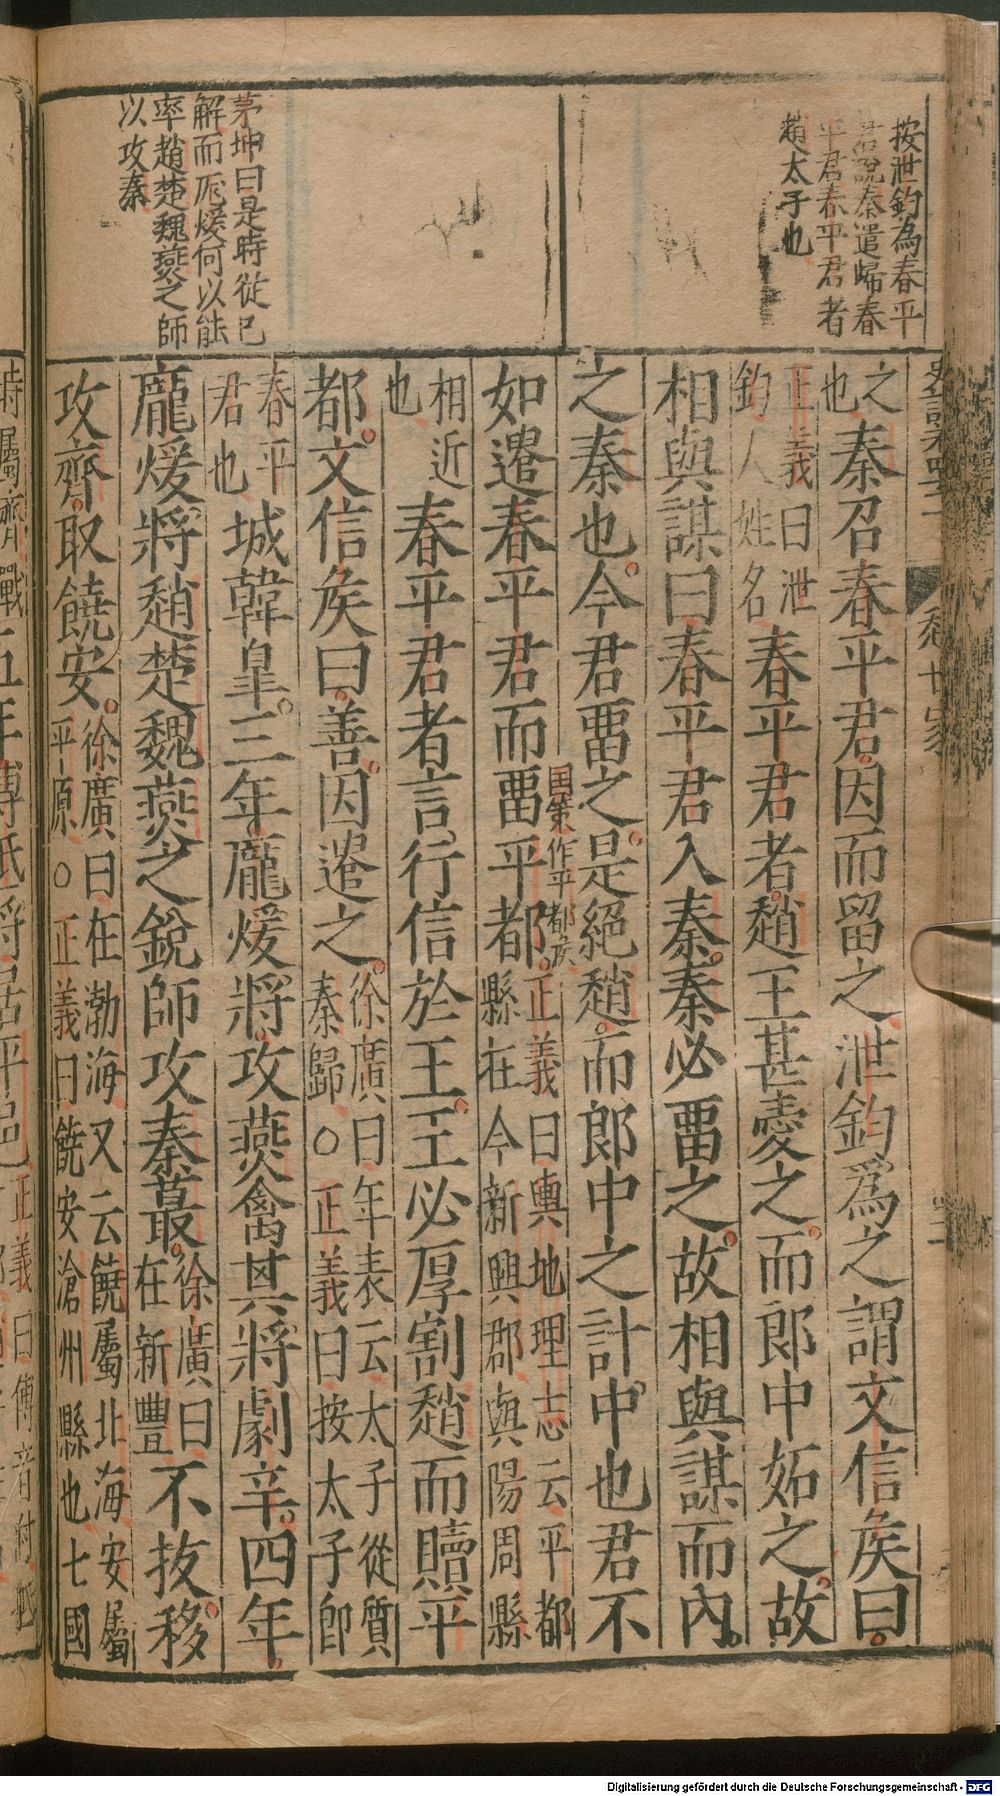 按泄鈞為春平
君說秦遣歸春
平君春平君者
趙太子也
茅坤曰是時從已
解而龐煖何以能
率趙楚魏燕之師
以攻秦
之也秦召春平君因而留之泄鈞爲之謂文信矦曰
正義曰泄鈞人姓名春平君者趙王甚愛之而郎中妬之故
相與謀曰春平君入秦秦必畱之故相與謀而內
之秦也今君畱之是絕趙而郎中之計中也君不
如遣春平君而畱平都正義曰輿地理志云平都縣在今新興郡與陽周縣
国策作平都矦
相近也春平君者言行信於王王必厚割趙而贖平
都文信矦曰善因遣之徐廣曰年表云太子從質秦歸○正義曰按太子卽
春平君也城韓臯三年龐煖將攻燕禽其將劇辛四年
龐煖將趙楚魏燕之銳師攻秦蕞徐廣曰在新豐不拔移
攻齊取饒安徐廣曰在渤海又云饒屬北海安屬平原○正義曰饒安滄州縣也七國
時屬齊戰五年傅抵將居平邑正義曰傅音付
Digitalisierung gefördert durch die Deutsche Forschungsgemeinschaft - DFG